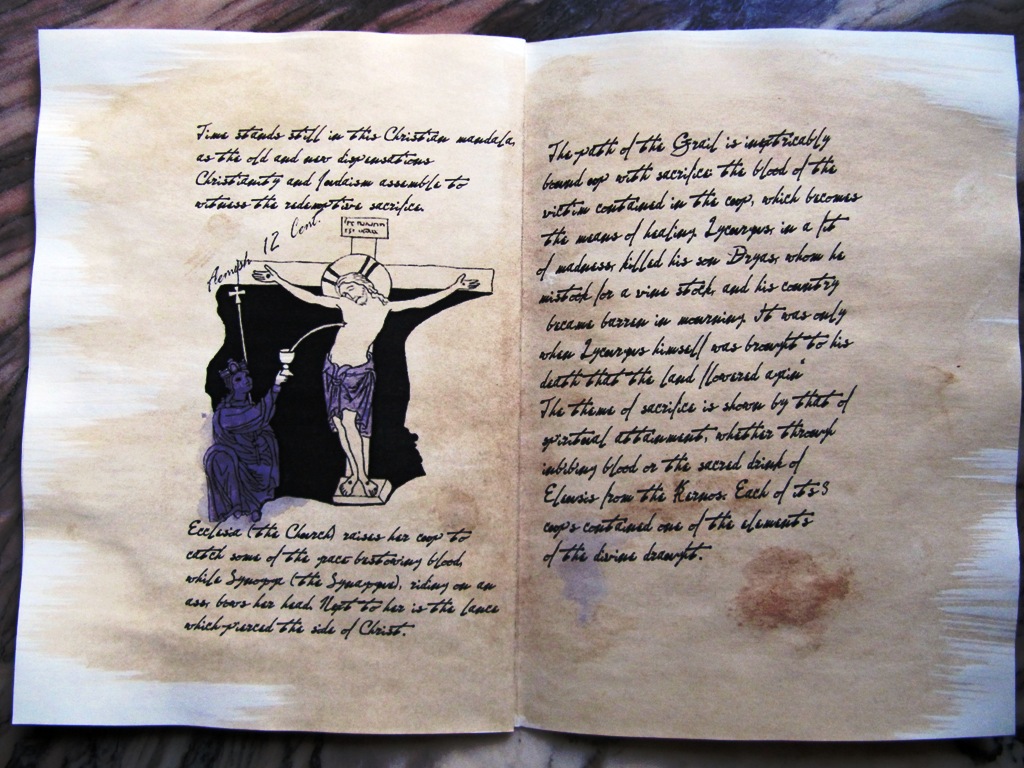 Time stands still in this Christian mandala,
as the old and new dispensations
Christianity and Judaism assemble to
witness the redemptive sacrifice.
12 Cent.
Ecclesia (the Church) raises her cup to
catch some of the grace bestowing blood,
while Synagoga (the Synagogue), riding on an
ass, bows her head. Next to her is the lance
which pierced the side of Christ.
The path of the Grail is inextricably
bound up with sacrifice: the blood of the
victim contained in the cup, which becomes
the means of healing. Lycurgus, in a fit
of madness, killed his son Dryas, whom he
mistook for a vine stock, and his country
became barren in mourning. It was only
when Lycurgus himself was brought to his
death that the land flowered again"
The theme of sacrifice is shown by that of
spiritual attainment, whether through
imbibing blood or the sacred drink of
Eleusis from the Kernos. Each of its
cups contained one of the elements
of the divine draught.